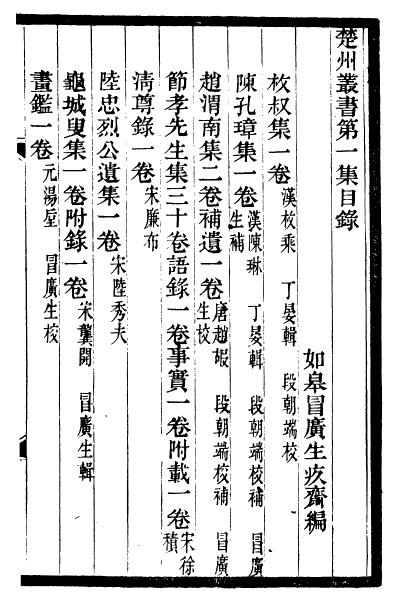 楚州叢書第一集目錄
如皋冒廣生疚齋編
枚叔集一卷 漢枚乘 丁晏輯 段朝端校
陳孔璋集一卷 漢陳琳 丁晏輯 段朝端校補 冒廣生補
趙渭南集二卷補遺一卷 唐趙嘏 段朝端校補 冒廣生校
節孝先生集三十卷語錄一卷事實一卷附載一卷 宋徐積
清尊錄一卷 宋廉布
陸忠烈公遺集一卷 宋陸秀夫
龜城叟集一卷附錄一卷 宋龔開 冒廣生輯
畫鑑一卷 元湯垕 冒廣生校